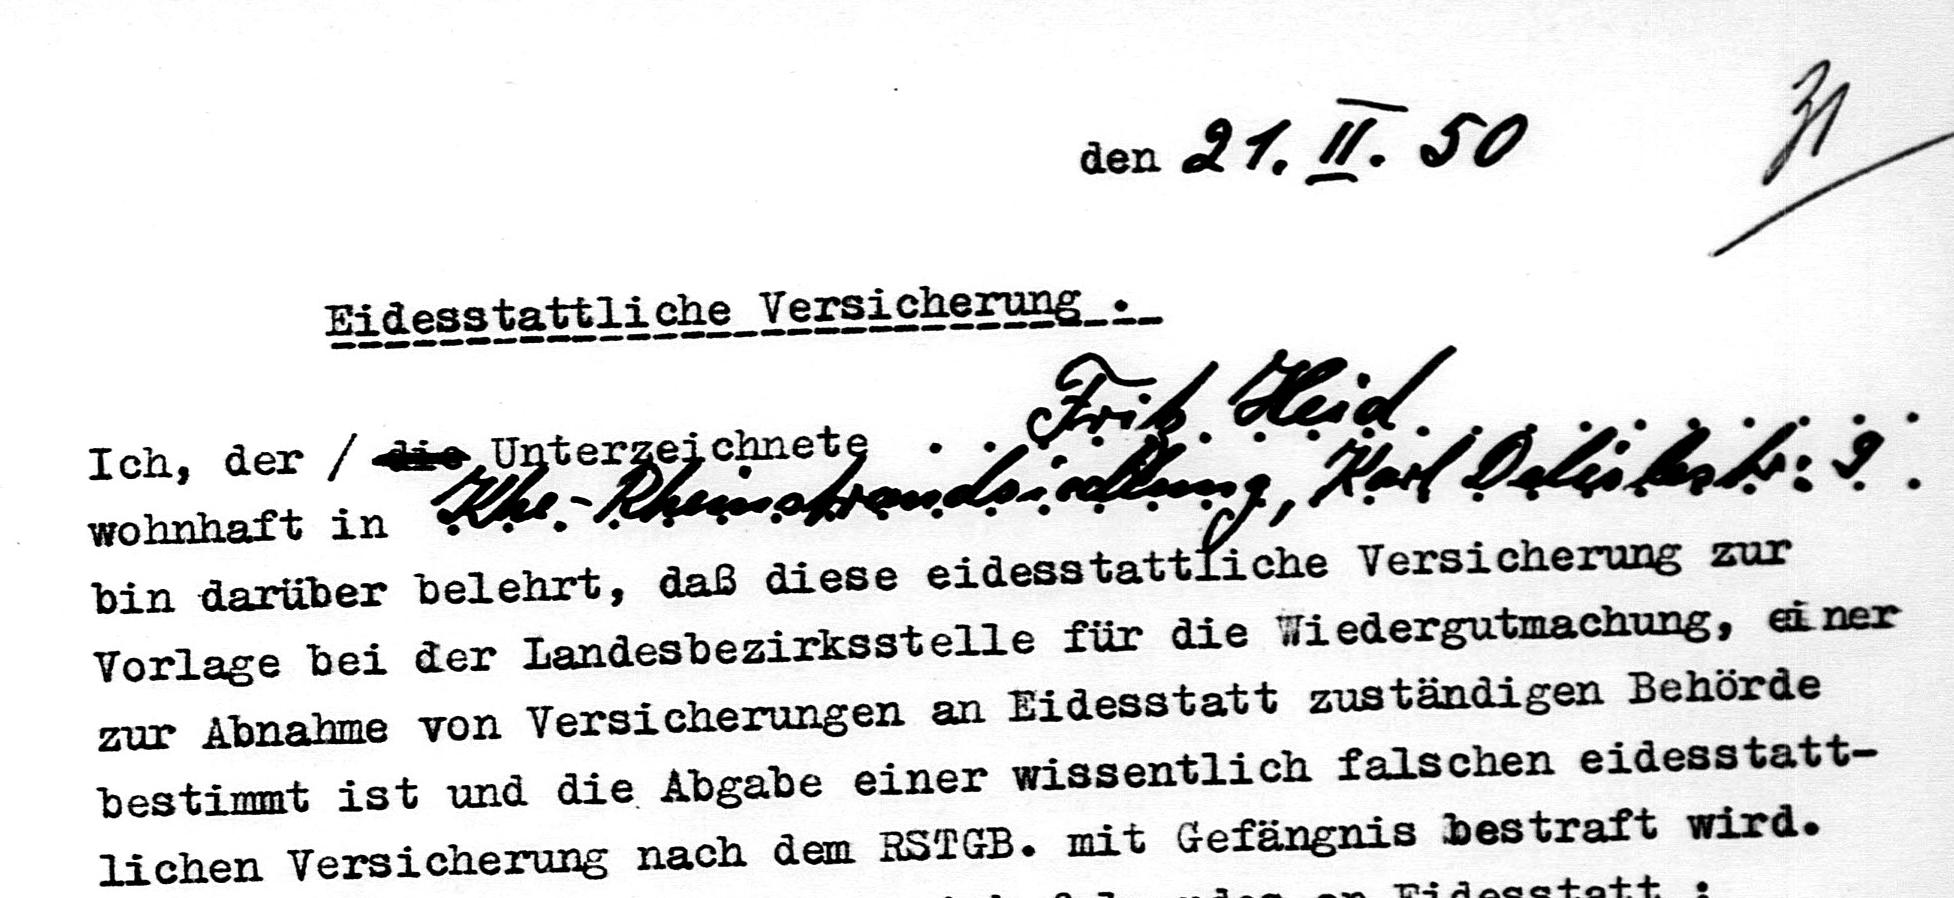 31
den 21. II. 50
Eidesstattliche Versicherung .
Ich, der / die Unterzeichnete . . Fritz Heid
wohnhaft in Khe-Rheinstrandsiedlung, Karl Delislestr: 9.
bin darüber belehrt, daß diese eidesstattliche Versicherung zur
Vorlage bei der Landesbezirksstelle für die Wiedergutmachung, einer
zur Abnahme von Versicherungen an Eidesstatt zuständigen Behörde
bestimmt ist und die Abgabe einer wissentlich falschen eidesstatt-
lichen Versicherung nach dem RSTGB. mit Gefängnis bestraft wird.
an Eidesstatt :